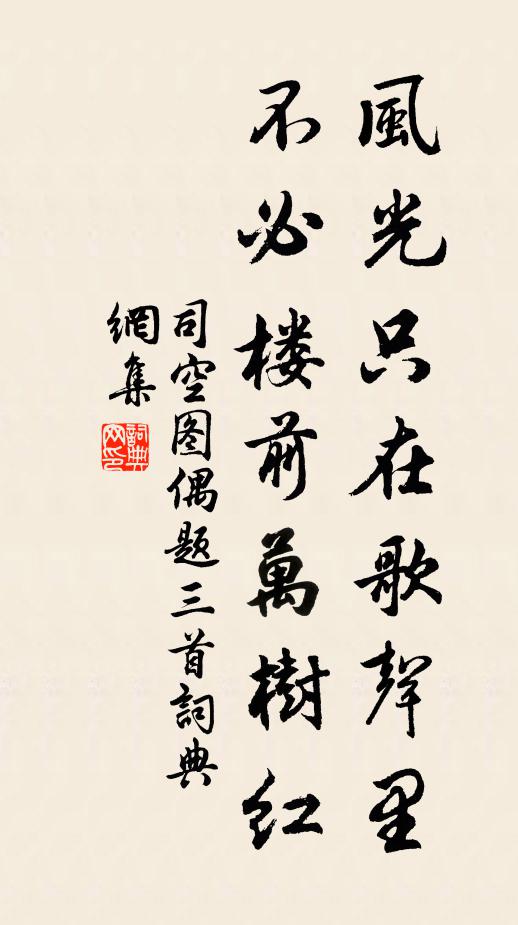 風光只在歌聲里
不必楼前萬樹紅
司空图偶题三首詞典
網集
詞典
网印